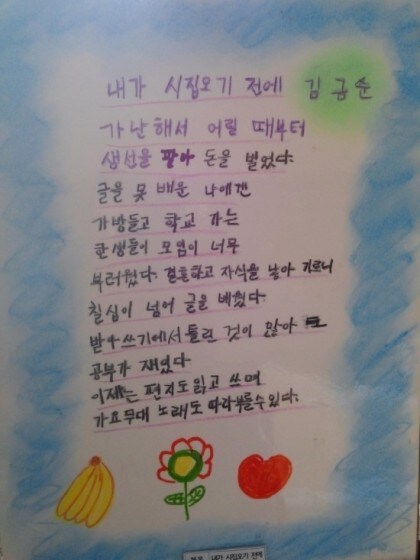 내가 시집오기 전에 김금순
가난해서 어릴 때부터
생선을 팔아 돈을 벌었다.
글을 못 배운 나에겐
가방들고 학교 가는
한생들이 모염이 너무
부러웠다. 결혼하고 자식을 낳아 기르니
칠십이 넘어 글을 배웠다.
받아쓰기에서 틀린 것이 많아
공부가 재밌다.
이제는 편지도 읽고 쓰며
가요무대 노래도 따라부를수있다.
내가 시집오기 전에